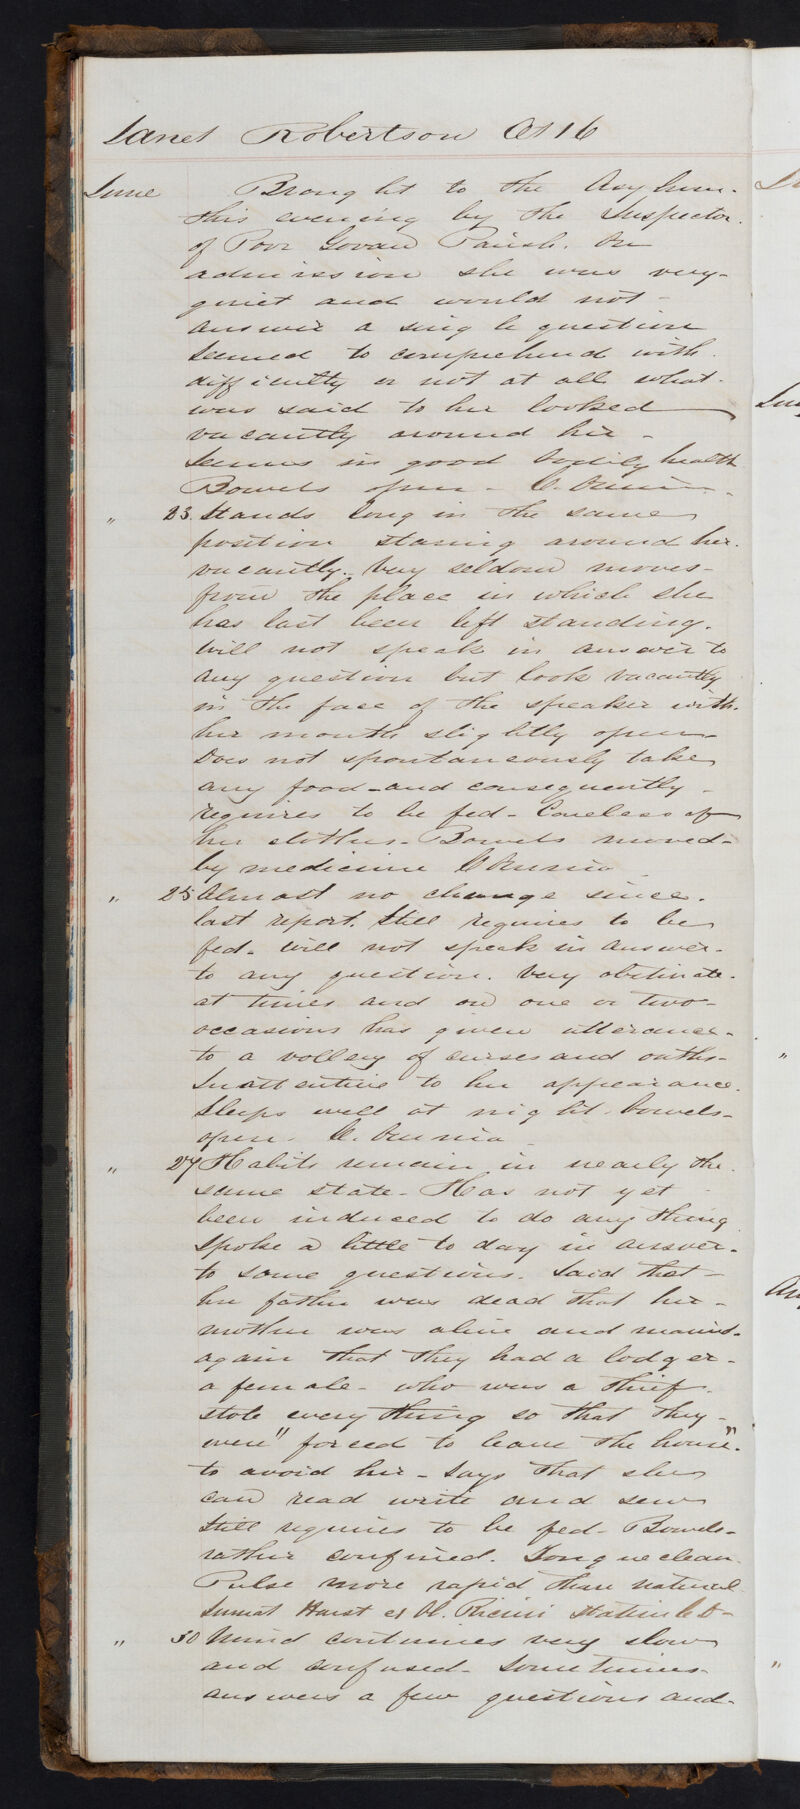 Janet Robertson Æt 16
June Brought to the Asylum.
this evening by the Inspector.
of Poor Govan Parish. On
admission she was very-
quiet and would not-
answer a single question
seemed to comprehend with.
difficulty or not at all what-
was said to her looked
vacantly around her-
Seems in good bodily health
Bowels open-
" 23. Stands long in the same
position staring around her.
vacantly. Very seldom moves-
from the place in which she
has last been left standing.
Will not speak in answer to
any question but look vacantly
in the face of the speaker with.
her mouth slightly open-
Does not spontaneously take
any food-and consequently-
requires to be fed- Careless of
her clothes- Bowels moved-
by medicine
" 25 Almost no change since.
last report. Still requires to be
fed. will not speak in answer-
to any question. Very obstinate-
at times and on one or two-
occasions has given utterance-
to a volley of curses and oaths-
Inattentive to her appearance.
Sleeps well at night. bowels-
open.
" 27 Habits remain in nearly the.
same state- Has not yet
been induced to do any thing
Spoke a little to day in answer-
to some questions. Said that-
her father was dead that her-
mother was alive and married-
again that they had a lodger-
a female- who was a thief.
stole every thing so that they-
were "forced to leave the house".
to avoid her- Says that she
can read write and sew
Still requires to be fed- Bowels-
rather confined. Tongue clean.
Pulse more rapid than natural
Sumat Haust Ol. Ricini statim
" 30 Mind continues very slow
and confused- Sometimes-
answers a few questions and-